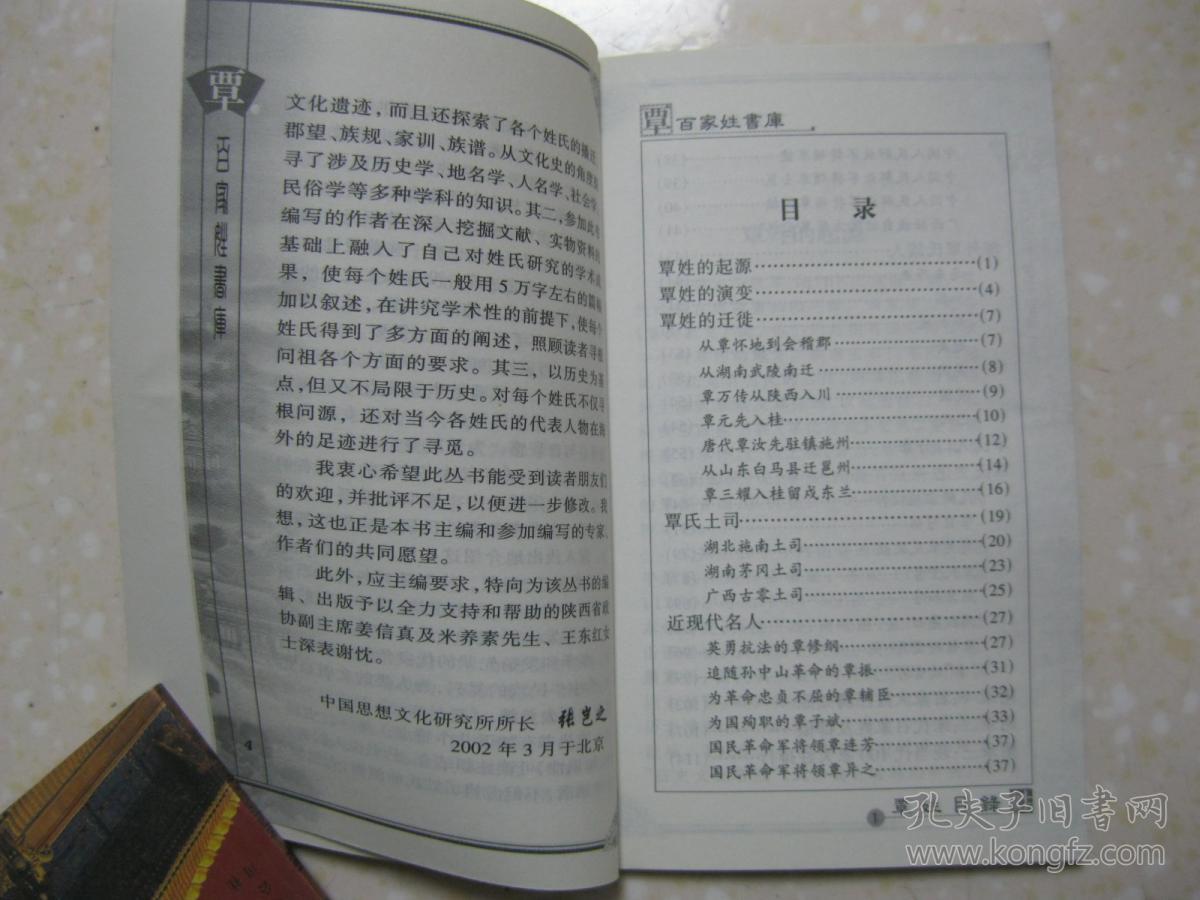 覃
百家姓書庫
文化遗迹，而且还探索了各个姓氏的播迁、
郡望、族规、家训、族谱。从文化史的角度
寻了涉及历史学、地名学、人名学、社会学、
民俗学等多种学科的知识。其二，参加此书
编写的作者在深入挖掘文献、实物资料的
基础上融入了自己对姓氏研究的学术成
果，使每个姓氏一般用5万字左右的篇幅
加以叙述，在讲究学术性的前提下，使每个
姓氏得到了多方面的阐述，照顾读者寻根
问祖各个方面的要求。其三，以历史为基
点，但又不局限于历史。对每个姓氏不仅寻
根问源，还对当今各姓氏的代表人物在海
外的足迹进行了寻觅。
我衷心希望此丛书能受到读者朋友们
的欢迎，并批评不足，以便进一步修改。我
想，这也正是本书主编和参加编写的专家、
作者们的共同愿望。
此外，应主编要求，特向为该丛书的编
辑、出版予以全力支持和帮助的陕西省政
协副主席姜信真及米养素先生、王东红女
士深表谢忱。
中国思想文化研究所所长 张岂之
2002年3月于北京
4
覃 百家姓書庫
目 录
覃姓的起源……………………(1)
覃姓的演变……………………(4)
覃姓的迁徙……………………(7)
从覃怀地到会稽郡……………(7)
从湖南武陵南迁………………(8)
覃万传从陕西入川……………(9)
覃元先入桂……………………(10)
唐代覃汝先驻镇施州…………(12)
从山东白马县迁邕州…………(14)
覃三耀入桂留戍东兰…………(16)
覃氏土司………………………(19)
湖北施南土司…………………(20)
湖南茅冈土司…………………(23)
广西古零土司…………………(25)
近现代名人……………………(27)
英勇抗法的覃修纲……………(27)
追随孙中山革命的覃振………(31)
为革命忠贞不屈的覃辅臣……(32)
为国殉职的覃子斌……………(33)
国民革命军将领覃连芳………(37)
国民革命军将领覃异之………(37)
1
覃姓目錄
孔夫子旧书网
www.kongfz.com